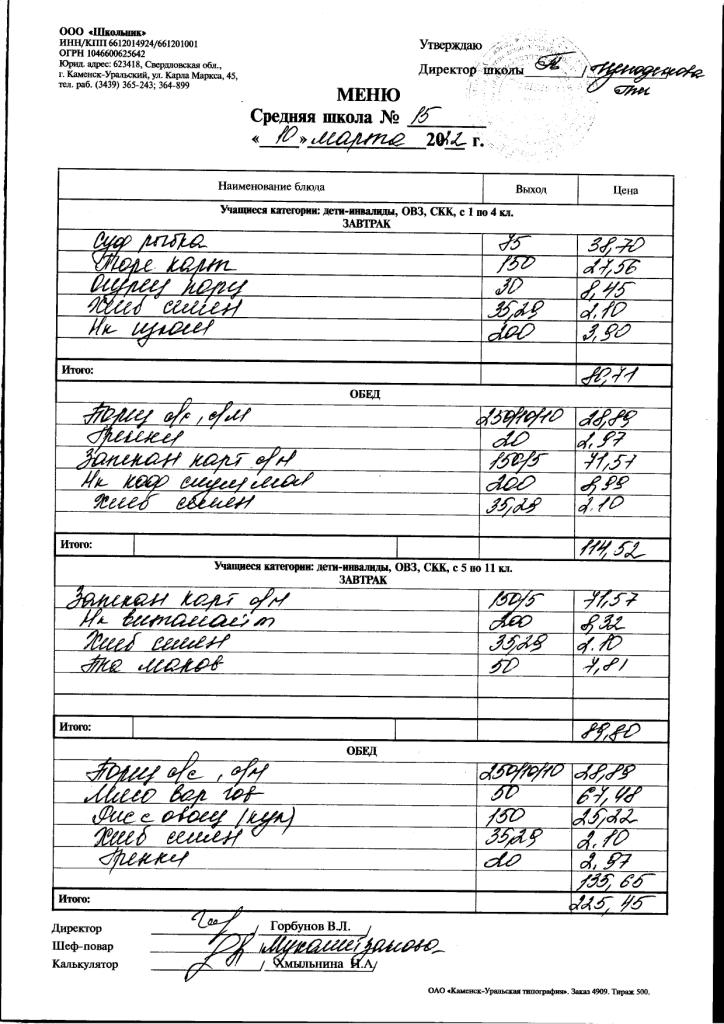 ООО «Школьник"
ИНН/КПП 6612014924/661201001
ОГРН 1046600625642
Юрид. адрес: 623418, Свердловская обл.,
г. Каменск-Уральский, ул. Карла Маркса, 45,
тел. раб. (3439) 365-243; 364-899
Утверждаю
Директор школы
МЕНЮ
Средняя школа № 15
« 10 » марта 2022 г.
Наименование блюда Выход Цена
Учащиеся категории: дети-инвалиды, ОВЗ, СКК, с 1 по 4 кл.
ЗАВТРАК
суф рыбка 75 38,70
Пюре карт 150 27,56
Огурец порц 30 8,45
Хлеб 35,29 2.10
Нк 200 3,90
Итого: 80,71
ОБЕД
Борщ с/с, с/м 250/10/10 28,89
Гренки 20 2,97
Запекан карт с/м 150/5 71,57
Нк 200 8,99
Хлеб 35,29 2.10
Итого: 114,52
Учащиеся категории: дети-инвалиды, ОВЗ, СКК, с 5 по 11 кл.
ЗАВТРАК
Запекан карт с/м 150/5 71,57
Нк витамайт 200 8,32
Хлеб 35,29 2.10
50 7,81
Итого: 89,80
ОБЕД
Борщ с/с, с/м 250/10/10 28,89
Мясо вар гов 50 67,48
Рис с овощ (кук) 150 25,22
Хлеб 35,29 2.10
Гренки 20 2,97
135,65
Итого: 225,45
Директор / Горбунов В.Л. /
Шеф-повар /
Калькулятор / Хмыльнина Н.А/
ОАО «Каменск-Уральская типография». Заказ 4909. Тираж 500.